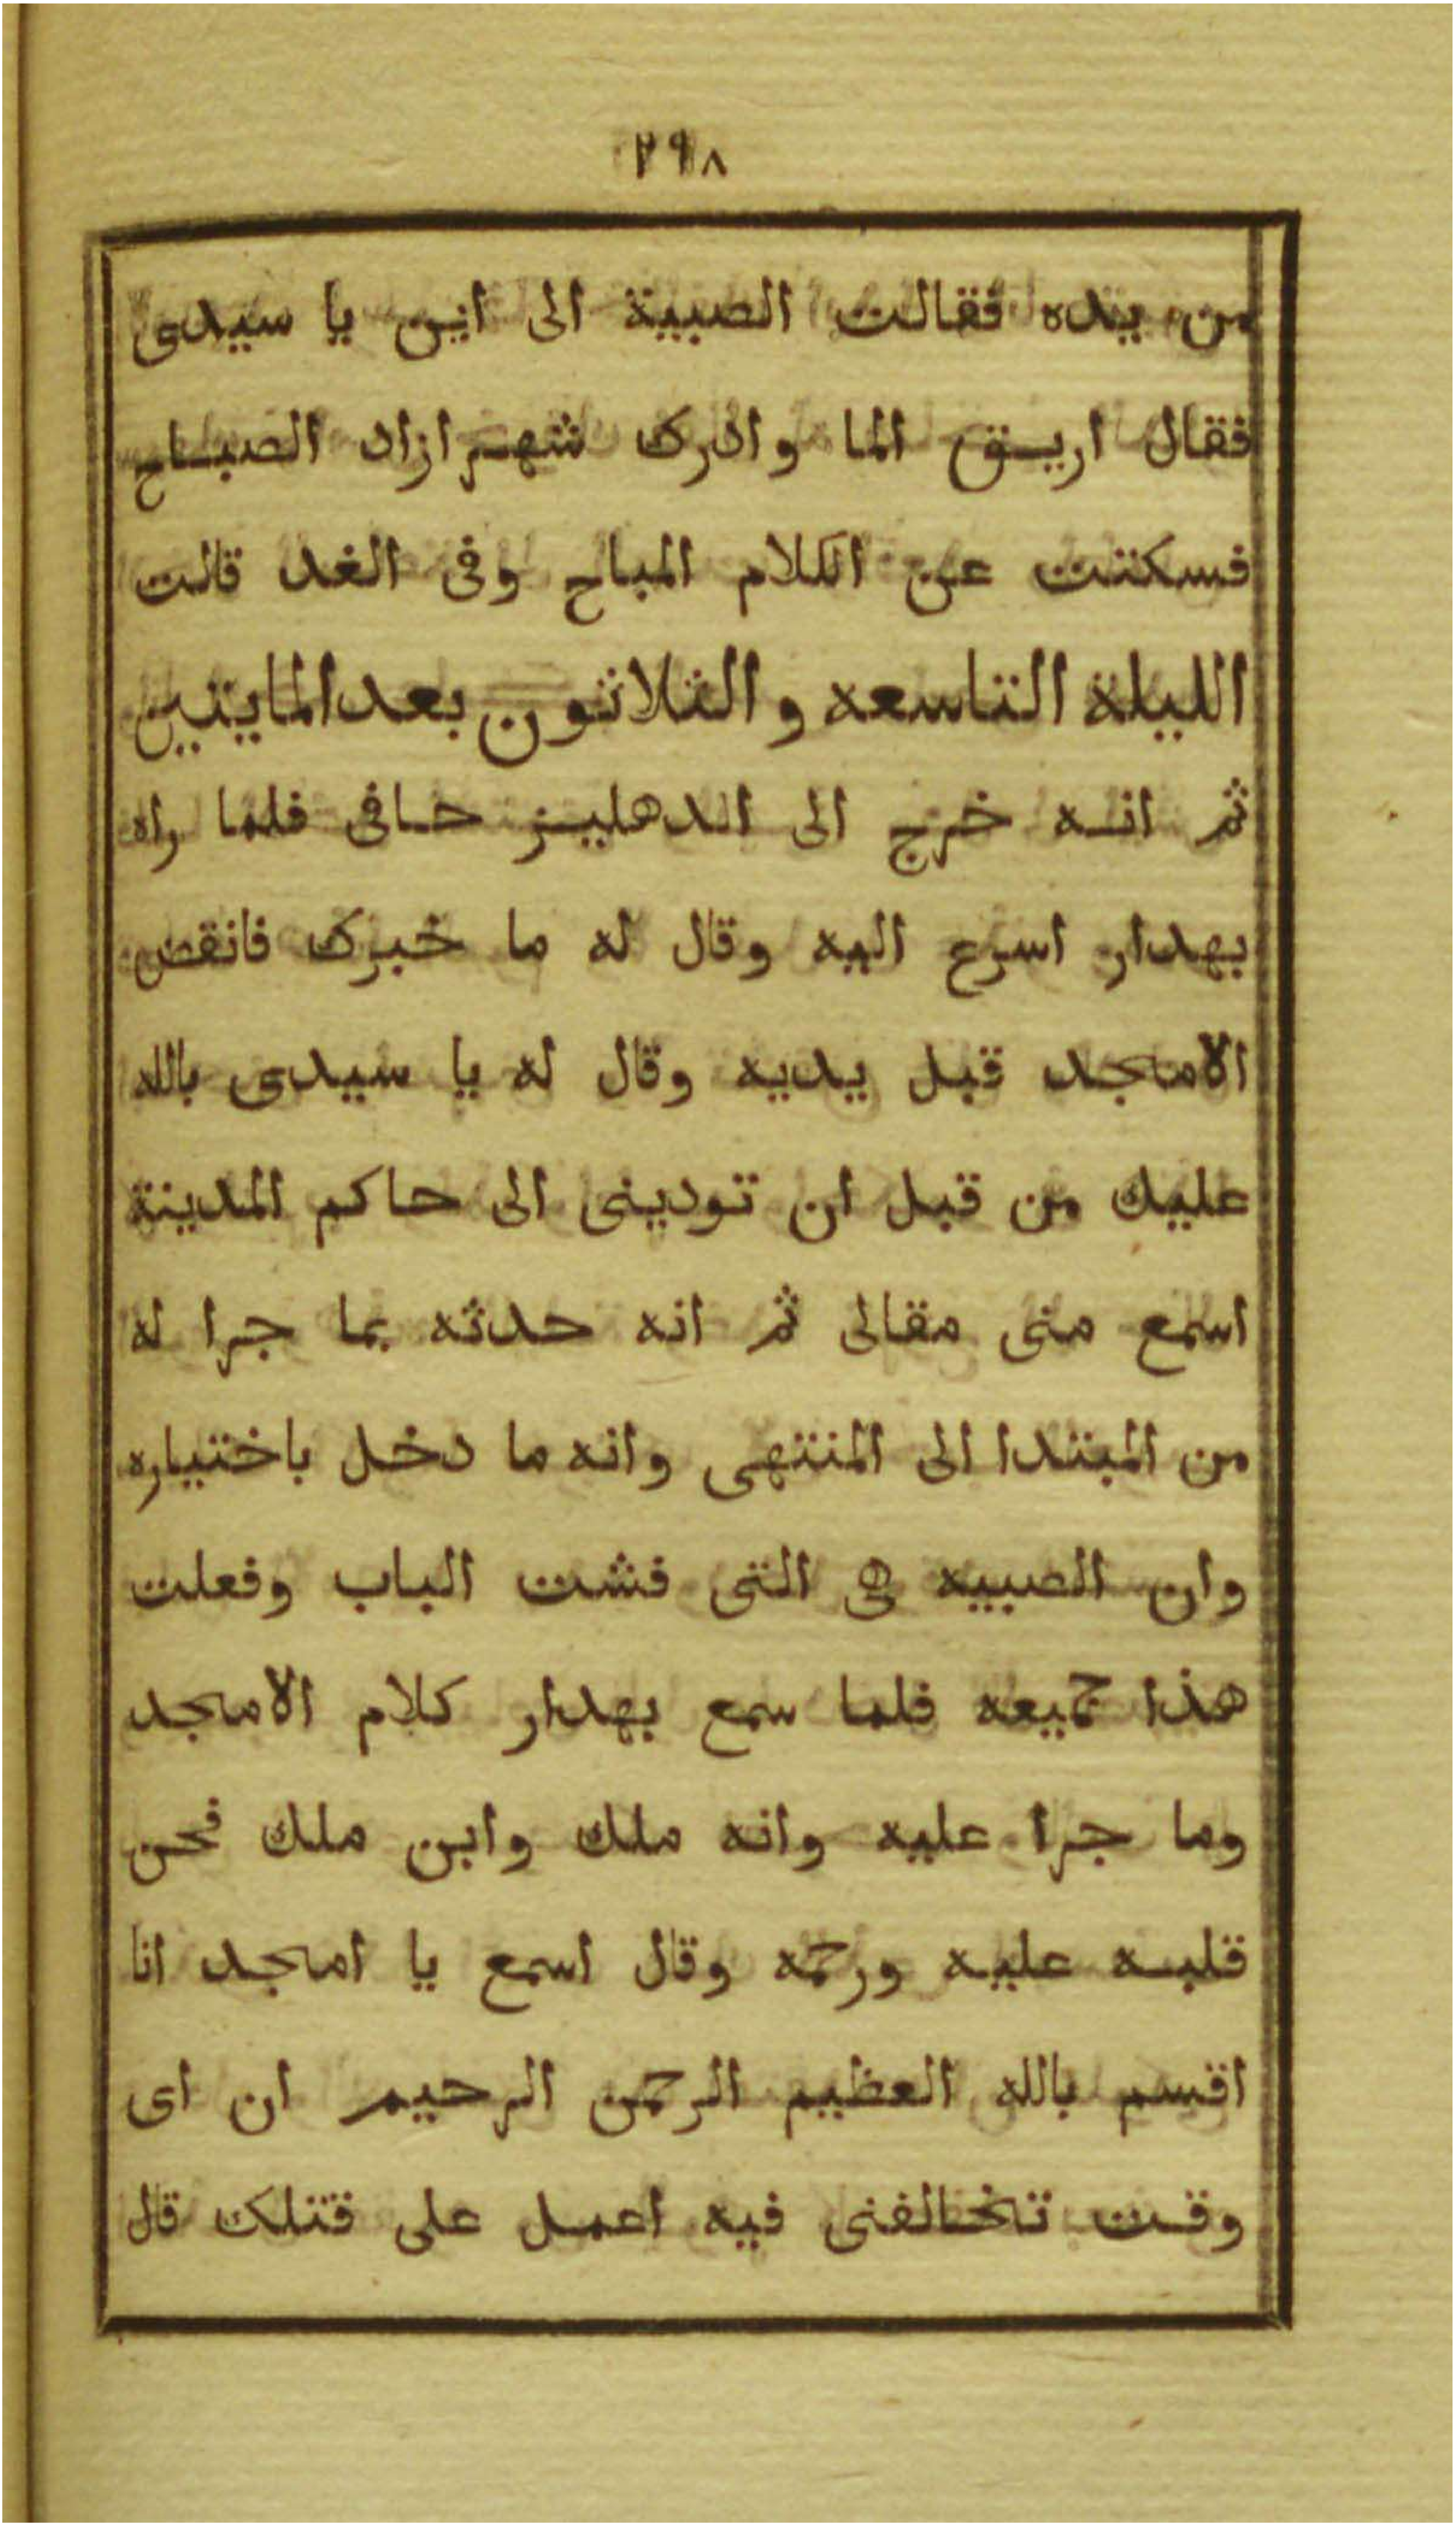 ٢٩٨
من يده فقالت الصبية الى اين يا سيدى
فقال اريق الما وادرك شهرازاد الصباح
فسكتت عن الكلام المباح وفى الغد قالت
الليلة التاسعه والثلاثون بعد المايتين
ثم انه خرج الى الدهليز حافى فلما راه
بهدار اسرع اليه وقال له ما خبرك فانقض
الامجد قبل يديه وقال له يا سيدى بالله
عليك من قبل ان تودينى الى حاكم المدينة
اسمع منى مقالى ثم انه حدثه بما جرا له
من المبتدا الى المنتهى وانه ما دخل باختياره
وان الصبيه هى التى فشت الباب وفعلت
هذا جميعه فلما سمع بهدار كلام الامجد
وما جرا عليه وانه ملك وابن ملك فحن
قلبه عليه ورحمه وقال اسمع يا امجد انا
اقسم بالله العظيم الرحمن الرحيم ان اى
وقت تخالفنى فيه اعمل على قتلك قال